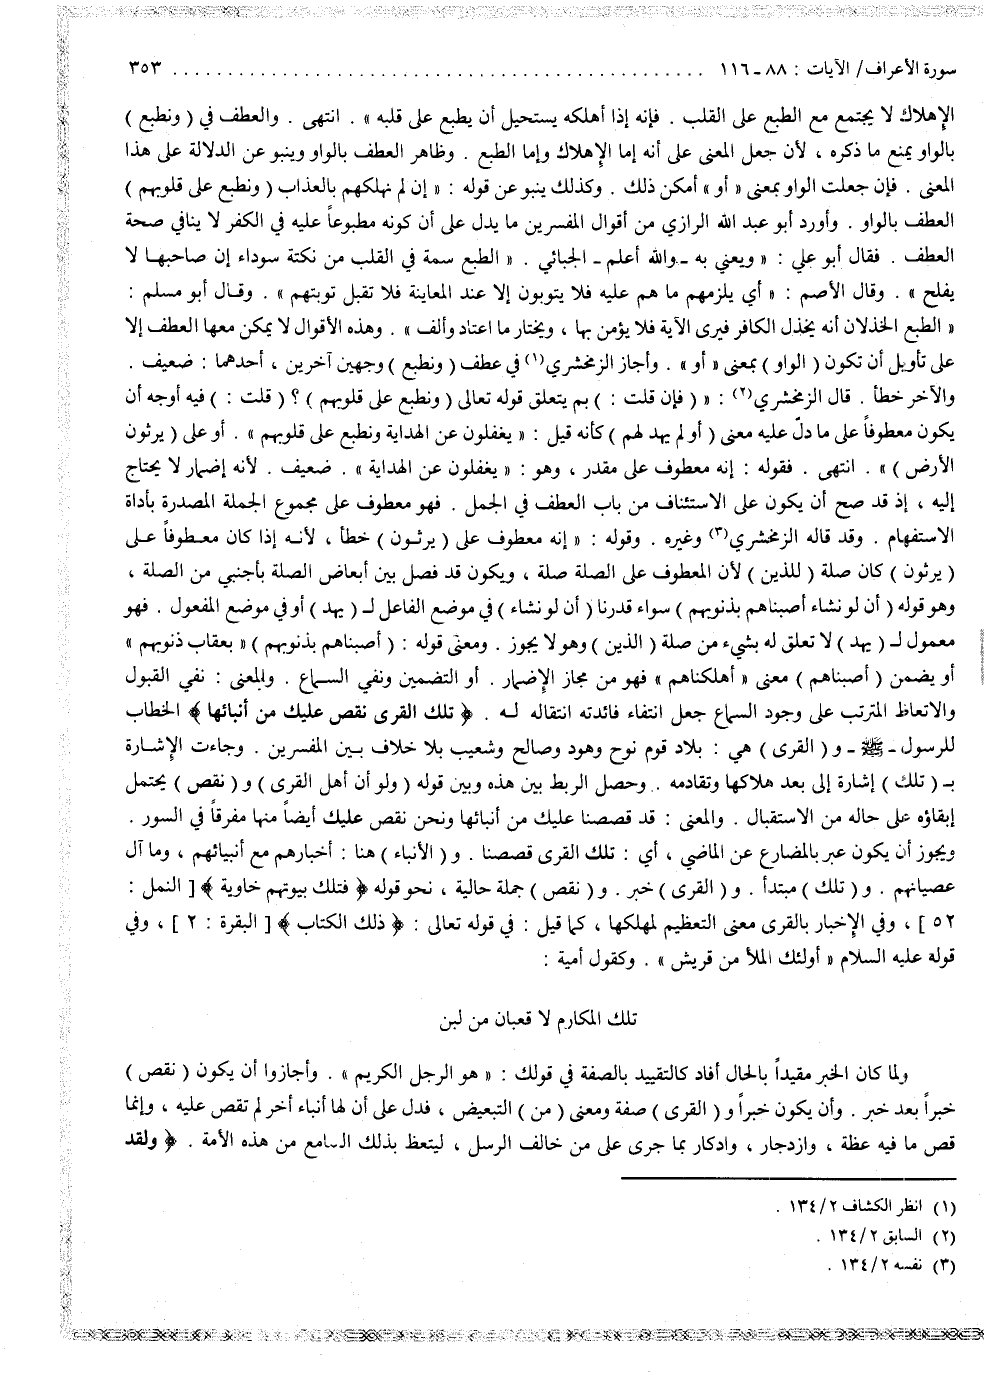 سورة الأعراف/ الآيات : ٨٨ ـ ١١٦ ................................................. ٣٥٣
الإهلاك لا يجتمع مع الطبع على القلب . فإنه إذا أهلكه يستحيل أن يطبع على قلبه » . انتهى . والعطف في ( ونطبع )
بالواو يمنع ما ذكره ، لأن جعل المعنى على أنه إما الإهلاك وإما الطبع . وظاهر العطف بالواو وينبو عن الدلالة على هذا
المعنى . فإن جعلت الواو بمعنى « أو » أمكن ذلك . وكذلك ينبو عن قوله : « إن لم نهلكهم بالعذاب ( ونطبع على قلوبهم )
العطف بالواو . وأورد أبو عبد الله الرازي من أقوال المفسرين ما يدل على أن كونه مطبوعاً عليه في الكفر لا ينافي صحة
العطف . فقال أبو علي : « ويعني به ـ والله أعلم ـ الجبائي . « الطبع سمة في القلب من نكتة سوداء إن صاحبها لا
يفلح » . وقال الأصم : « أي يلزمهم ما هم عليه فلا يتوبون إلا عند المعاينة فلا تقبل توبتهم » . وقال أبو مسلم :
« الطبع الخذلان أنه يخذل الكافر فيرى الآية فلا يؤمن بها ، ويختار ما اعتاد وألف » . وهذه الأقوال لا يمكن معها العطف إلا
على تأويل أن تكون ( الواو ) بمعنى « أو » . وأجاز الزمخشري(١) في عطف ( ونطبع ) وجهين آخرين ، أحدهما : ضعيف .
والآخر خطأ . قال الزمخشري(٢) : « ( فإن قلت : ) بم يتعلق قوله تعالى ( ونطبع على قلوبهم ) ؟ ( قلت : ) فيه أوجه أن
يكون معطوفاً على ما دلّ عليه معنى ( أو لم يهد لهم ) كأنه قيل : « يغفلون عن الهداية ونطبع على قلوبهم » . أو على ( يرثون
الأرض ) » . انتهى . فقوله : إنه معطوف على مقدر ، وهو : « يغفلون عن الهداية » . ضعيف . لأنه إضمار لا يحتاج
إليه ، إذ قد صح أن يكون على الاستئناف من باب العطف في الجمل . فهو معطوف على مجموع الجملة المصدرة بأداة
الاستفهام . وقد قاله الزمخشري(٣) وغيره . وقوله : « إنه معطوف على ( يرثون ) خطأ ، لأنه إذا كان معطوفاً على
( يرثون ) كان صلة ( للذين ) لأن المعطوف على الصلة صلة ، ويكون قد فصل بين أبعاض الصلة بأجنبي من الصلة ،
وهو قوله ( أن لو نشاء أصبناهم بذنوبهم ) سواء قدرنا ( أن لو نشاء ) في موضع الفاعل لـ ( يهد ) أو في موضع المفعول . فهو
معمول لـ ( يهد ) لا تعلق له بشيء من صلة ( الذين ) وهو لا يجوز . ومعنى قوله : ( أصبناهم بذنوبهم ) « بعقاب ذنوبهم »
أو يضمن ( أصبناهم ) معنى « أهلكناهم » فهو من مجاز الإضمار . أو التضمين ونفي السماع . والمعنى : نفي القبول
والاتعاظ المترتب على وجود السماع جعل انتفاء فائدته انتقاله له . ﴿ تلك القرى نقص عليك من أنبائها ﴾ الخطاب
للرسول ـ ﷺ ـ و ( القرى ) هي : بلاد قوم نوح وهود وصالح وشعيب بلا خلاف بين المفسرين . وجاءت الإشارة
بـ ( تلك ) إشارة إلى بعد هلاكها وتقادمه . وحصل الربط بين هذه وبين قوله ( ولو أن أهل القرى ) و ( نقص ) يحتمل
إبقاؤه على حاله من الاستقبال . والمعنى : قد قصصنا عليك من أنبائها ونحن نقص عليك أيضاً منها مفرقاً في السور .
ويجوز أن يكون عبر بالمضارع عن الماضي ، أي : تلك القرى قصصنا . و ( الأنباء ) هنا : أخبارهم مع أنبيائهم ، ومآل
عصيانهم . و ( تلك ) مبتدأ . و ( القرى ) خبر . و ( نقص ) جملة حالية ، نحو قوله ﴿ فتلك بيوتهم خاوية ﴾ [ النمل :
٥٢ ] ، وفي الإخبار بالقرى معنى التعظيم لمهلكها ، كما قيل : في قوله تعالى : ﴿ ذلك الكتاب ﴾ [ البقرة : ٢ ] ، وفي
قوله عليه السلام « أولئك الملأ من قريش » . وكقول أمية :
تلك المكارم لا قعبان من لبن
ولما كان الخبر مقيداً بالحال أفاد كالتقييد بالصفة في قولك : « هو الرجل الكريم » . وأجازوا أن يكون ( نقص )
خبراً بعد خبر . وأن يكون خبراً و ( القرى ) صفة ومعنى ( من ) التبعيض ، فدل على أن لها أنباء أخر لم تقص عليه ، وإنما
قص ما فيه عظة ، وازدجار ، وادكار بما جرى على من خالف الرسل ، ليتعظ بذلك السامع من هذه الأمة . ﴿ ولقد
(١) انظر الكشاف ١٣٤/٢ .
(٢) السابق ١٣٤/٢ .
(٣) نفسه ١٣٤/٢ .